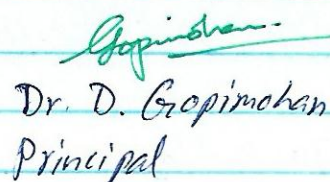 Gopimohan
Dr. D. Gopimohan
Principal